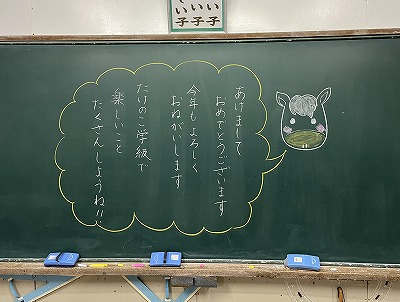 あけまして
おめでとうございます
今年もよろしく
おねがいします
たけのこ学級で
楽しいこと
たくさんしようね!!